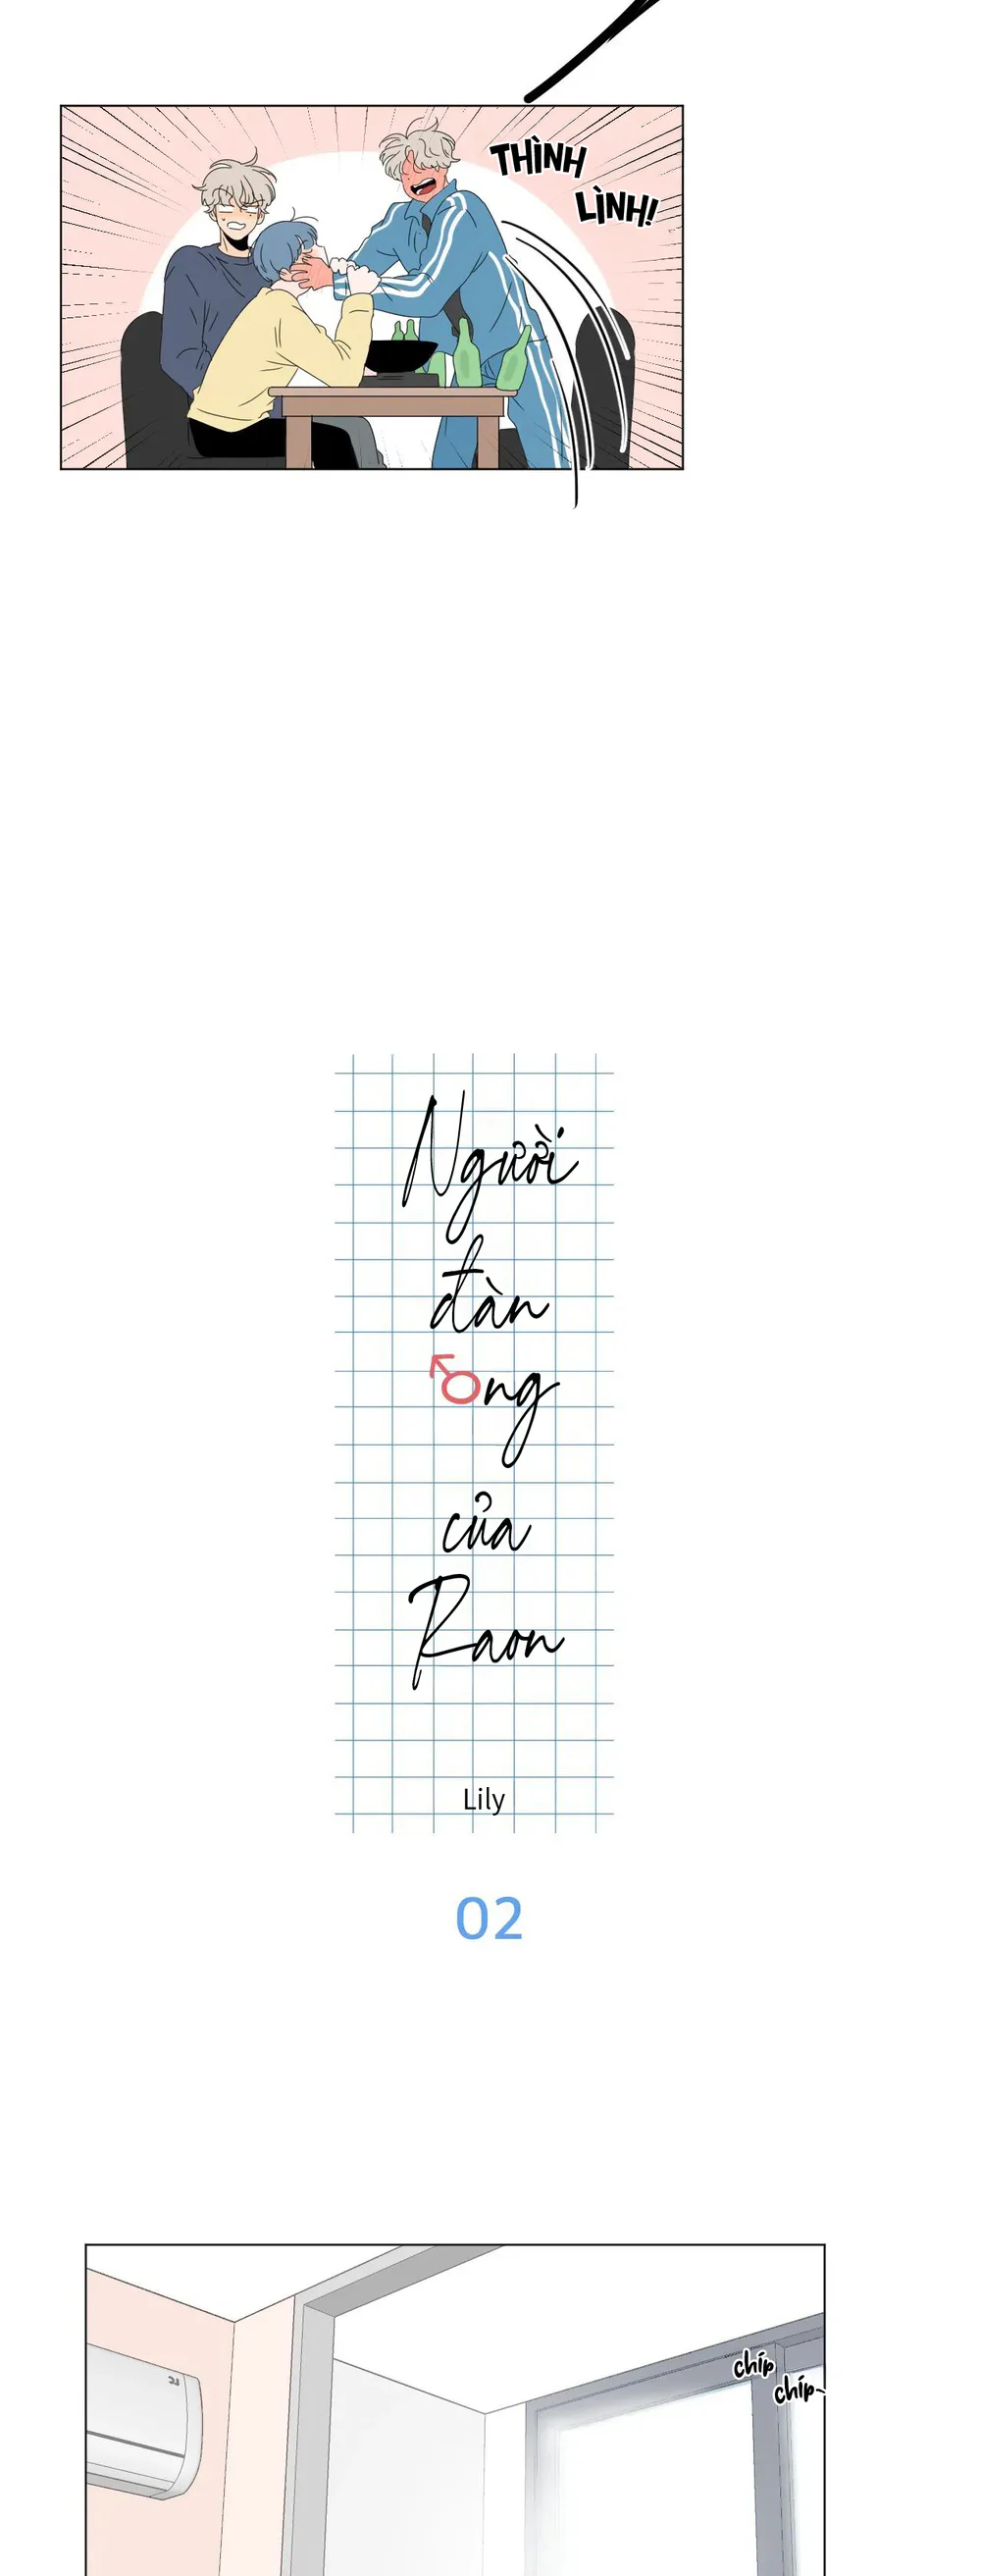 THÌNH
LÌNH!
Người
đàn
ông
của
Raon
Lily
02
chíp
chíp~